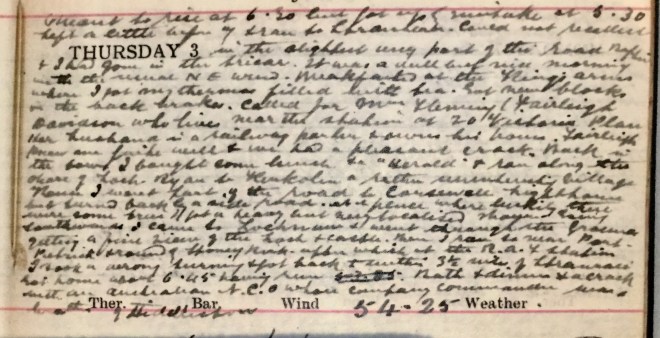 meant to rise at 6.30 but got up by mistake at 5.30
kept a little before I ran to Stranraer. Could not
THURSDAY 3 in the slightest any part of the road
& I had gone in the sidecar. It was a dull but nice morning
with the usual N E wind. Breakfasted at the King's arms
where I got my thermos filled with tea. Got new blocks
in the back brakes. Called for Mrs Fleming (Fairleigh
Davidson who lives near the station at 20 Victoria Place
Her husband is a railway porter & owns his house. Fairleigh
knew my quite well & we had a pleasant crack. Back in
the town I bought some lunch & a "Herald" & ran along the
shore of Loch Ryan to Kirkcolm a rather uninteresting village
Hence I went part of the road to Corsewall lighthouse
but turned back by a side road. at a place where luckily there
were some trees I got a heavy but very localised shower.
southwards I came to Lochnaw & went through the grounds
getting a fine view of the loch & castle. Then I ran so near Port-
Patrick & round by Stoneykirk after which at the R.A.F. station
I took a wrong turning & got back to within 3½ miles of Stranraer
Got home about 6.45 having run. Bath & dinner & a crack
with an Australian N.C.O whose company commander was
Ther. Bar. Wind 54.25 Weather .